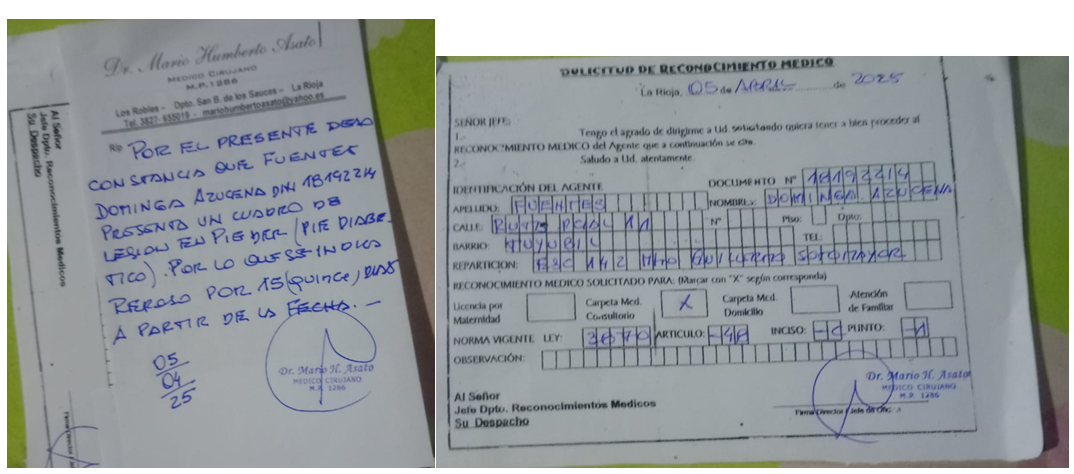 Dr. Mario Humberto Asato
MEDICO CIRUJANO
M.P. 1286
Los Robles - Dpto. San B. de los Sauces - La Rioja
Tel. 3827- 655019 - mariohumbertoasato@yahoo.es
Rip POR EL PRESENTE DEJO
CONSTANCIA QUE FUENTES
DOMINGA AZUCENA DNI 18192214
PRESENTA UN CUADRO DE
LESION EN PIE DER (PIE DIABE-
TICO). POR LO QUE SE INDICA
REPOSO POR 15 (QUINCE) DIAS
A PARTIR DE LA FECHA. -
05
04
25
Dr. Mario H. Asato
MEDICO CIRUJANO
M.P. 1286
Al Señor
Jefe Dpto. Reconocimientos Medicos
Su Despacho
SOLICITUD DE RECONOCIMIENTO MEDICO
La Rioja, 05 de ABRIL de 2025
SEÑOR JEFE:
1.- Tengo el agrado de dirigirme a Ud. solicitando quiera tener a bien proceder al
RECONOCIMIENTO MEDICO del Agente que a continuación se cita.
2.- Saludo a Ud. atentamente.
IDENTIFICACIÓN DEL AGENTE DOCUMENTO Nº 18192214
APELLIDO: FUENTES NOMBRE: DOMINGA AZUCENA
CALLE: RUTA PCIAL 11 Nº Piso: Dpto:
BARRIO: TUYUBIL TEL:
REPARTICION: ESC 142 SOTOMAYOR
RECONOCIMIENTO MEDICO SOLICITADO PARA: (Marcar con "X" según corresponda)
Licencia por Maternidad
Carpeta Med. Consultorio X
Carpeta Med. Domicilio
Atención de Familiar
NORMA VIGENTE LEY: 3870 ARTICULO: -48 INCISO: -C PUNTO: -1
OBSERVACIÓN:
Dr. Mario H. Asato
MEDICO CIRUJANO
M.P. 1286
Al Señor
Jefe Dpto. Reconocimientos Medicos
Su Despacho
Firma Director / Jefe de Ofic.